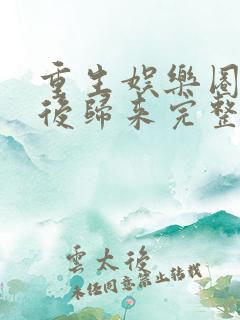 重生娛樂圈
後歸來完整
雲太後
未經同意禁止轉載